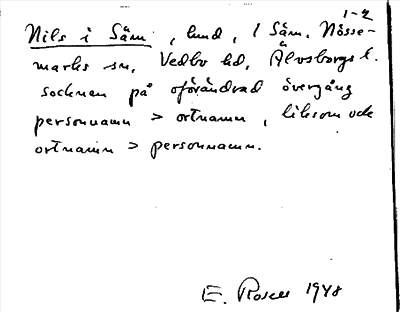 1-2
Nils i Säm, lund, 1 Säm, Nösse-
marks sn, Vedbo hd, Älvsborgs l.
socknen på oförändrad övergång
personnamn > ortnamn, liksom ock
ortnamn > personnamn.
E. Rosell 1948